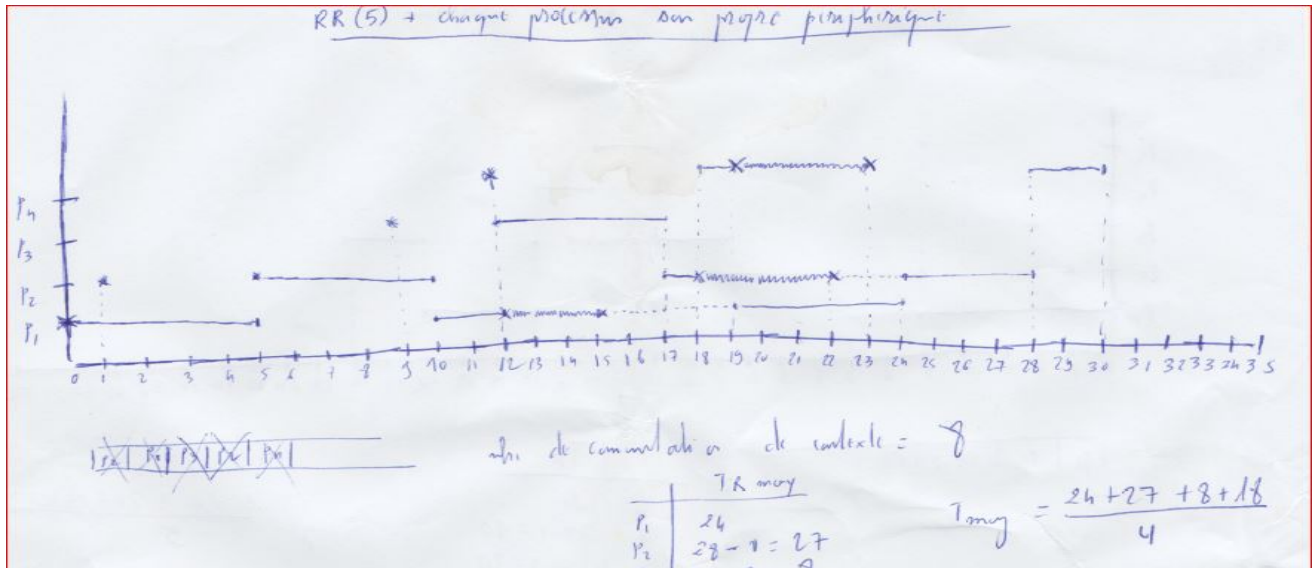 RR (5) + chaque processus son propre peripherique
P4
P3
P2
P1
0 1 2 3 4 5 6 7 8 9 10 11 12 13 14 15 16 17 18 19 20 21 22 23 24 25 26 27 28 29 30 31 32 33 34 35
nbr de commutation de contexte = 8
TR moy
P1 24
P2 28 - 1 = 27
Tmoy = 24 + 27 + 8 + 18
4